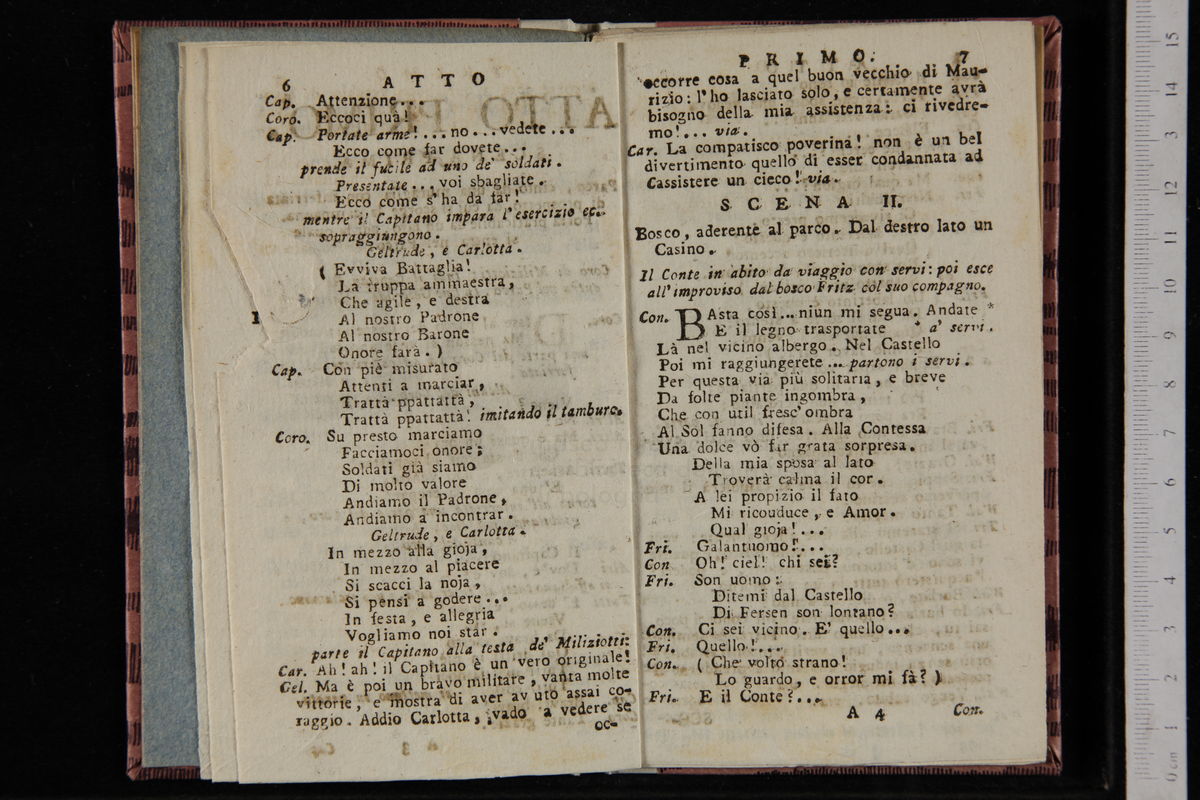 6 ATTO
Cap. Attenzione...
Coro. Eccoci quà!
Cap. Portate arme!...no...vedete...
Ecco come far dovete...
prende il fucile ad uno de' soldati.
Presentate...voi sbagliate.
Ecco come s'ha da far!
mentre il Capitano impara l'esercizio ec.
sopraggiungono.
Geltrude, e Carlotta.
( Evviva Battaglia!
La truppa ammaestra,
Che agile, e destra
Al nostro Padrone
Al nostro Barone
Onore farà. )
Cap. Con piè misurato
Attenti a marciar,
Trattà ppattattà,
Trattà ppattattà! imitando il tamburo.
Coro. Su presto marciamo
Facciamoci onore;
Soldati già siamo
Di molto valore
Andiamo il Padrone,
Andiamo a incontrar.
Geltrude, e Carlotta.
In mezzo alla gioja,
In mezzo al piacere
Si scacci la noja,
Si pensi a godere...
In festa, e allegria
Vogliamo noi star.
parte il Capitano alla testa de' Miliziotti:
Car. Ah! ah! il Capitano è un vero originale!
Gel. Ma è poi un bravo militare, vanta molte
vittorie, e mostra di aver avuto assai co-
raggio. Addio Carlotta, vado a vedere se
oc-
PRIMO. 7
occorre cosa a quel buon vecchio di Mau-
rizio: l'ho lasciato solo, e certamente avrà
bisogno della mia assistenza: ci rivedre-
mo!... via.
Car. La compatisco poverina! non è un bel
divertimento quello di esser condannata ad
Cassistere un cieco! via.
SCENA II.
Bosco, aderente al parco. Dal destro lato un
Casino.
Il Conte in abito da viaggio con servi: poi esce
all'improviso dal bosco Fritz col suo compagno.
Con. BAsta così...niun mi segua. Andate *
E il legno trasportate * a' servi.
Là nel vicino albergo. Nel Castello
Poi mi raggiungerete... partono i servi.
Per questa via più solitaria, e breve
Da folte piante ingombra,
Che con util fresc'ombra
Al Sol fanno difesa. Alla Contessa
Una dolce vò far grata sorpresa.
Della mia sposa al lato
Troverà calma il cor.
A lei propizio il fato
Mi ricouduce, e Amor.
Qual gioja!...
Fri. Galantuomo!...
Con Oh! ciel! chi sei?
Fri. Son uomo:
Ditemi dal Castello
Di Fersen son lontano?
Con. Ci sei vicino. E' quello...
Fri. Quello!...
Con. ( Che volto strano!
Lo guardo, e orror mi fà? )
Fri. E il Conte?...
A 4 Con.